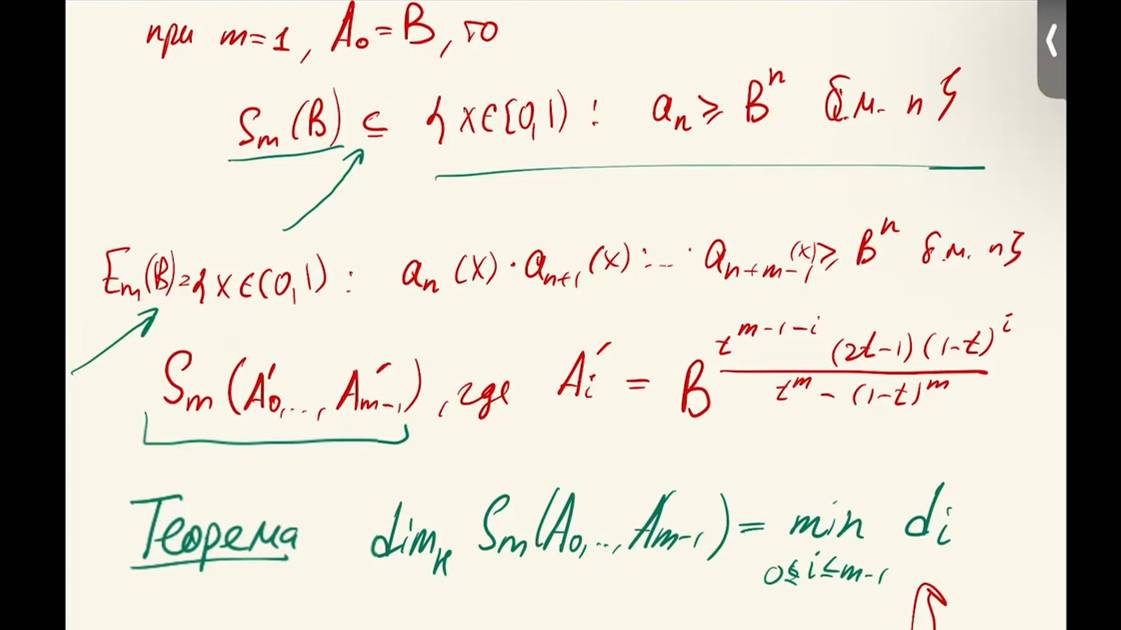 при m=1, A₀=B, то
Sₘ(B) ⊆ {x∈[0,1): aₙ ⩾ Bⁿ б.м. n}
Eₘ(B)={x∈(0,1): aₙ(x)·aₙ₊₁(x)·…·aₙ₊ₘ₋₁(x)⩾ Bⁿ б.м. n}
Sₘ(A₀′,…,Aₘ₋₁′), где Aᵢ′ = B^{\frac{t^{m-1-i}(2t-1)(1-t)^i}{t^m-(1-t)^m}}
Теорема dim_H Sₘ(A₀,…,Aₘ₋₁) = min_{0≤i≤m-1} dᵢ